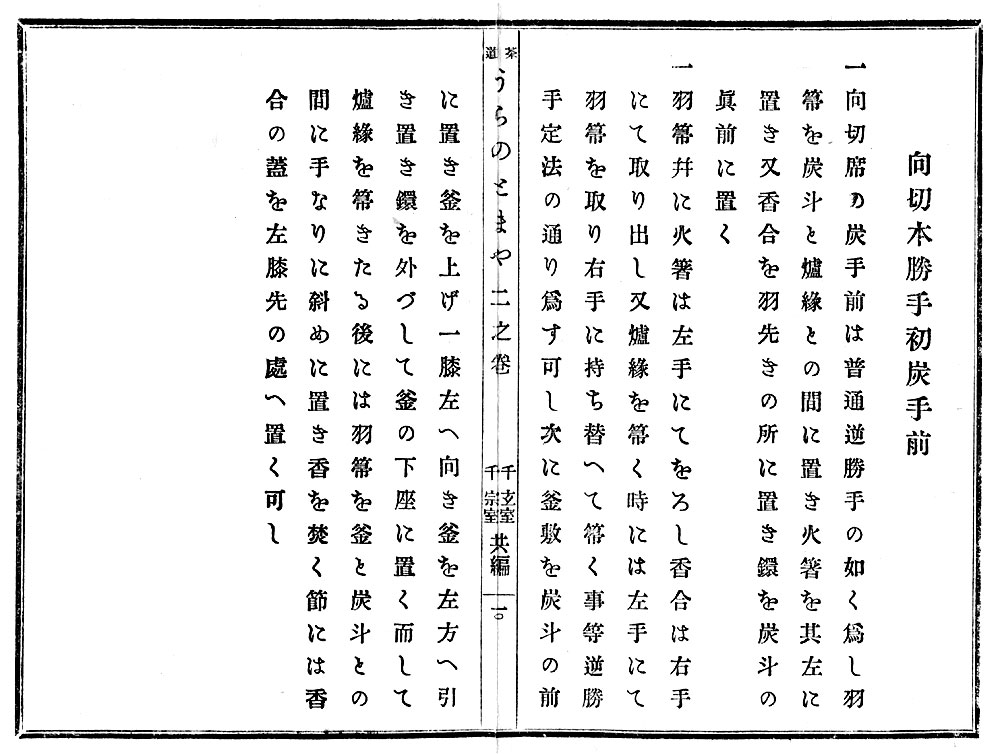 向切本勝手初炭手前
一向切席の炭手前は普通逆勝手の如く爲し羽
箒を炭斗と爐緣との間に置き火箸を其左に
置き又香合を羽先きの所に置き鐶を炭斗の
眞前に置く
一羽箒幷に火箸は左手にてをろし香合は右手
にて取り出し又爐緣を箒く時には左手にて
羽箒を取り右手に持ち替へて箒く事等逆勝
手定法の通り爲す可し次に釜敷を炭斗の前
茶道
うらのとまや二之卷
千玄室
千宗室
共編
一〇
に置き釜を上げ一膝左へ向き釜を左方へ引
き置き鐶を外づして釜の下座に置く而して
爐緣を箒きたる後には羽箒を釜と炭斗との
間に手なりに斜めに置き香を焚く節には香
合の蓋を左膝先の處へ置く可し